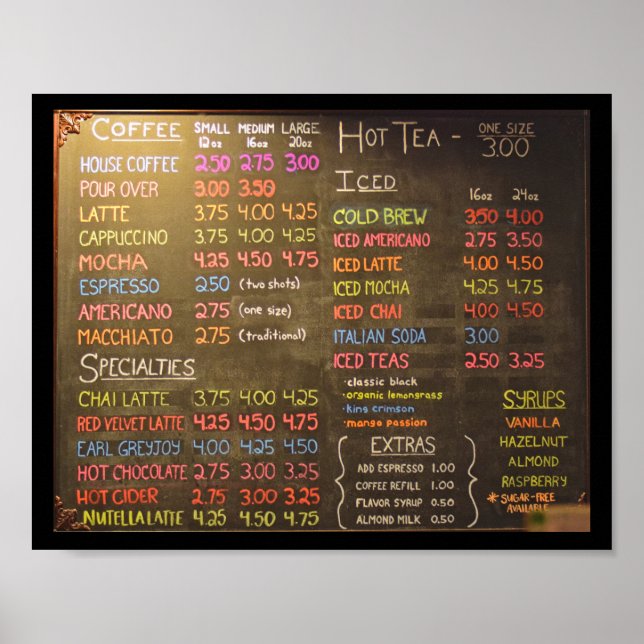 COFFEE SMALL 12oz MEDIUM 16oz LARGE 20oz
HOUSE COFFEE 2.50 2.75 3.00
POUR OVER 3.00 3.50
LATTE 3.75 4.00 4.25
CAPPUCCINO 3.75 4.00 4.25
MOCHA 4.25 4.50 4.75
ESPRESSO 2.50 (two shots)
AMERICANO 2.75 (one size)
MACCHIATO 2.75 (traditional)
SPECIALTIES
CHAI LATTE 3.75 4.00 4.25
RED VELVET LATTE 4.25 4.50 4.75
EARL GREYJOY 4.00 4.25 4.50
HOT CHOCOLATE 2.75 3.00 3.25
HOT CIDER 2.75 3.00 3.25
NUTELLA LATTE 4.25 4.50 4.75
HOT TEA - ONE SIZE 3.00
ICED
16oz 24oz
COLD BREW 3.50 4.00
ICED AMERICANO 2.75 3.50
ICED LATTE 4.00 4.50
ICED MOCHA 4.25 4.75
ICED CHAI 4.00 4.50
ITALIAN SODA 3.00
ICED TEAS 2.50 3.25
· classic black
· organic lemongrass
· king crimson
· mango passion
EXTRAS
ADD ESPRESSO 1.00
COFFEE REFILL 1.00
FLAVOR SYRUP 0.50
ALMOND MILK 0.50
SYRUPS
VANILLA
HAZELNUT
ALMOND
RASPBERRY
* SUGAR-FREE
AVAILABLE